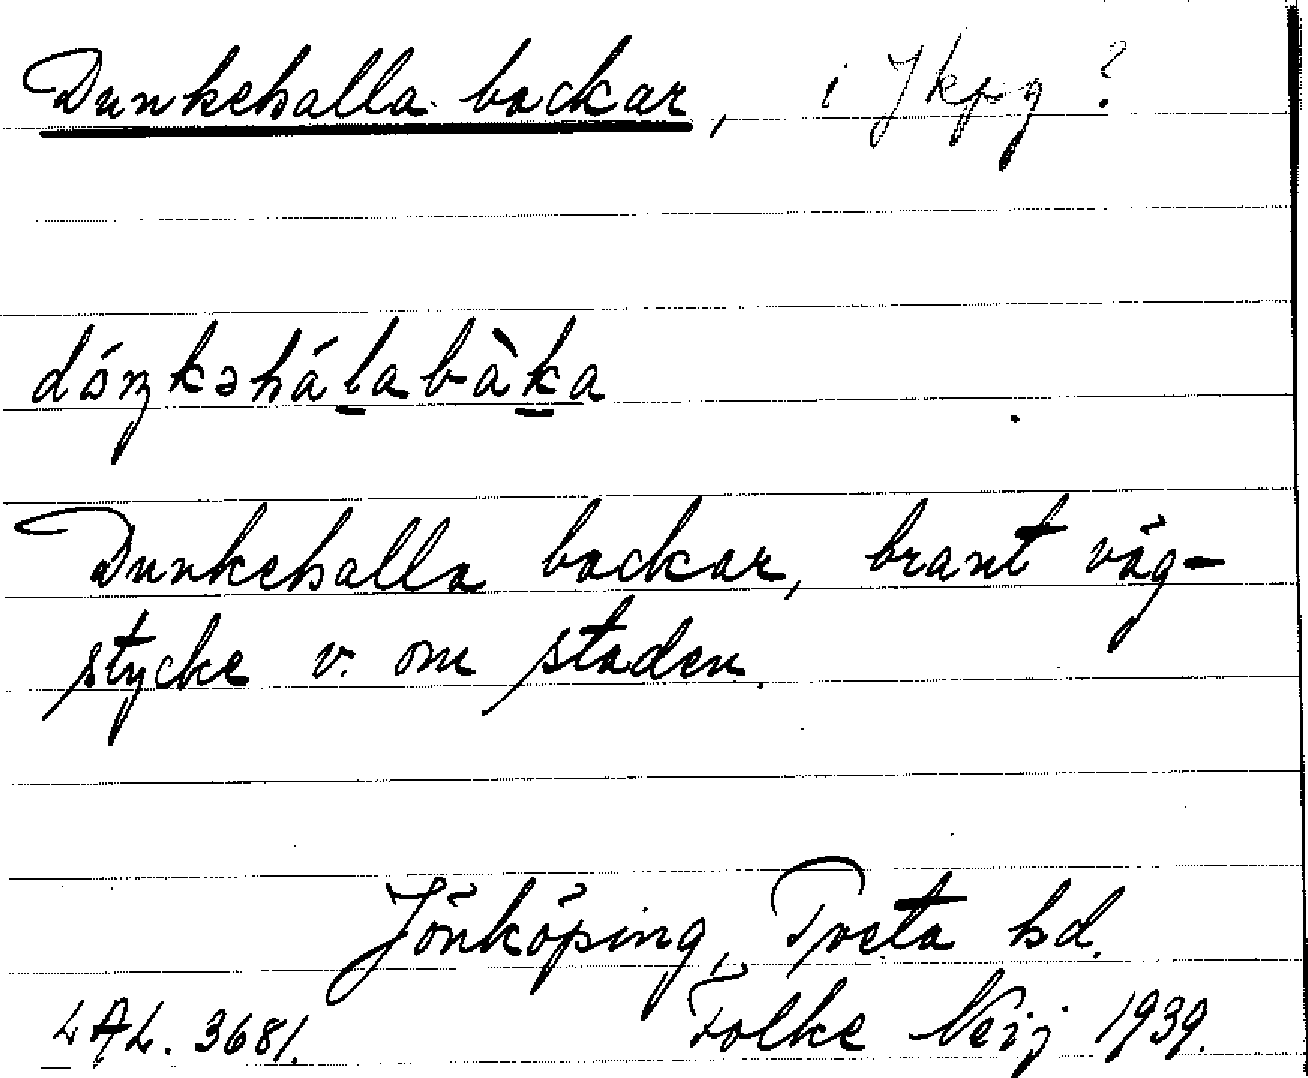 Dunkehalla backar, i Jkpg?
dóŋkəhálabàka
Dunkehalla backar, brant väg-
stycke v. om staden.
Jönköping, Tveta hd.
LAL. 3681. Folke Neij 1939.